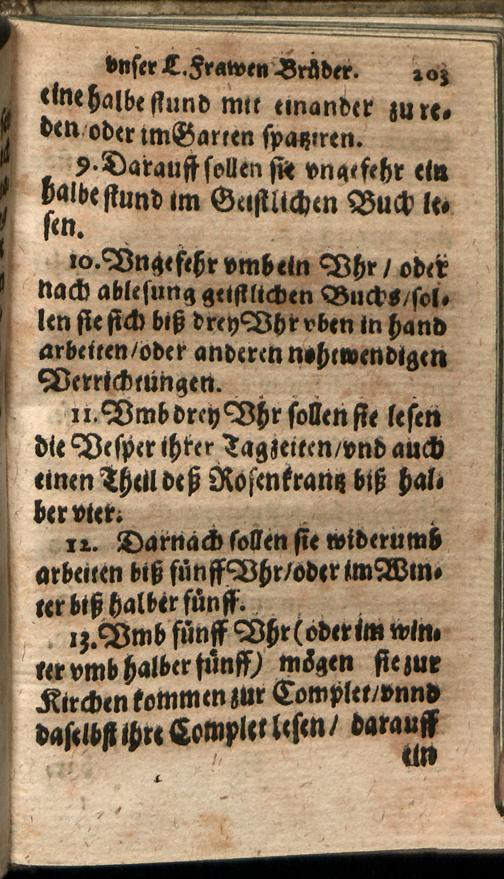 vnser L. Frawen Brüder. 203
eine halbe stund mit einander zu re-
den/oder im Garten spatziren.
9. Darauff sollen sie vngefehr ein
halbe stund im Geistlichen Buch le-
sen.
10. Vngefehr vmb ein Vhr / oder
nach ablesung geistlichen Buchs/sol-
len sie sich biß drey Vhr vben in hand
arbeiten/oder anderen nohtwendigen
Verrichtungen.
11. Vmb drey Vhr sollen sie lesen
die Vesper ihrer Tagzeiten/vnd auch
einen Theil deß Rosenkrantz biß hal-
ber vier.
12. Darnach sollen sie widerumb
arbeiten biß fünff Vhr/oder im Win-
ter biß halber fünff.
13. Vmb fünff Vhr (oder im win-
ter vmb halber fünff) mögen sie zur
Kirchen kommen zur Complet/vnnd
daselbst ihre Complet lesen / darauff
ein